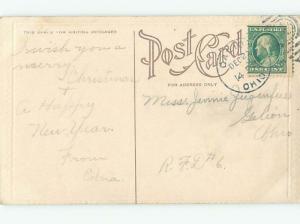 THIS SPACE FOR WRITING MESSAGES
Post Card
FOR ADDRESS ONLY
I wish you a
merry
Christmas
+
A Happy
New Year.
From
Edna
DEC
14
OHIO
Miss Jennie
Galion
Ohio
R.F.D. #6.